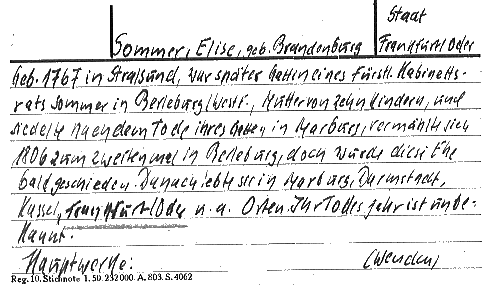 Staat
Sommer, Elise, geb. Brandenburg
Frankfurt/Oder
Geb. 1767 in Stralsund, war später Gattin eines Fürstl. Kabinetts-
rats Sommer in Berleburg/Westf., Mutter von zehn Kindern, und
siedelte nach dem Tode ihres Gatten in Marburg, vermählte sich
1806 zum zweiten mal in Berleburg, doch wurde diese Ehe
bald geschieden. Danach lebte sie in Marburg, Darmstadt,
Kassel, Frankfurt/Oder u. a. Orten. Ihr Todesjahr ist unbe-
kannt.
Hauptwerke:
(wenden)
Reg. 10. Stichnote 1. 50. 232000. A. 803. S. 4062